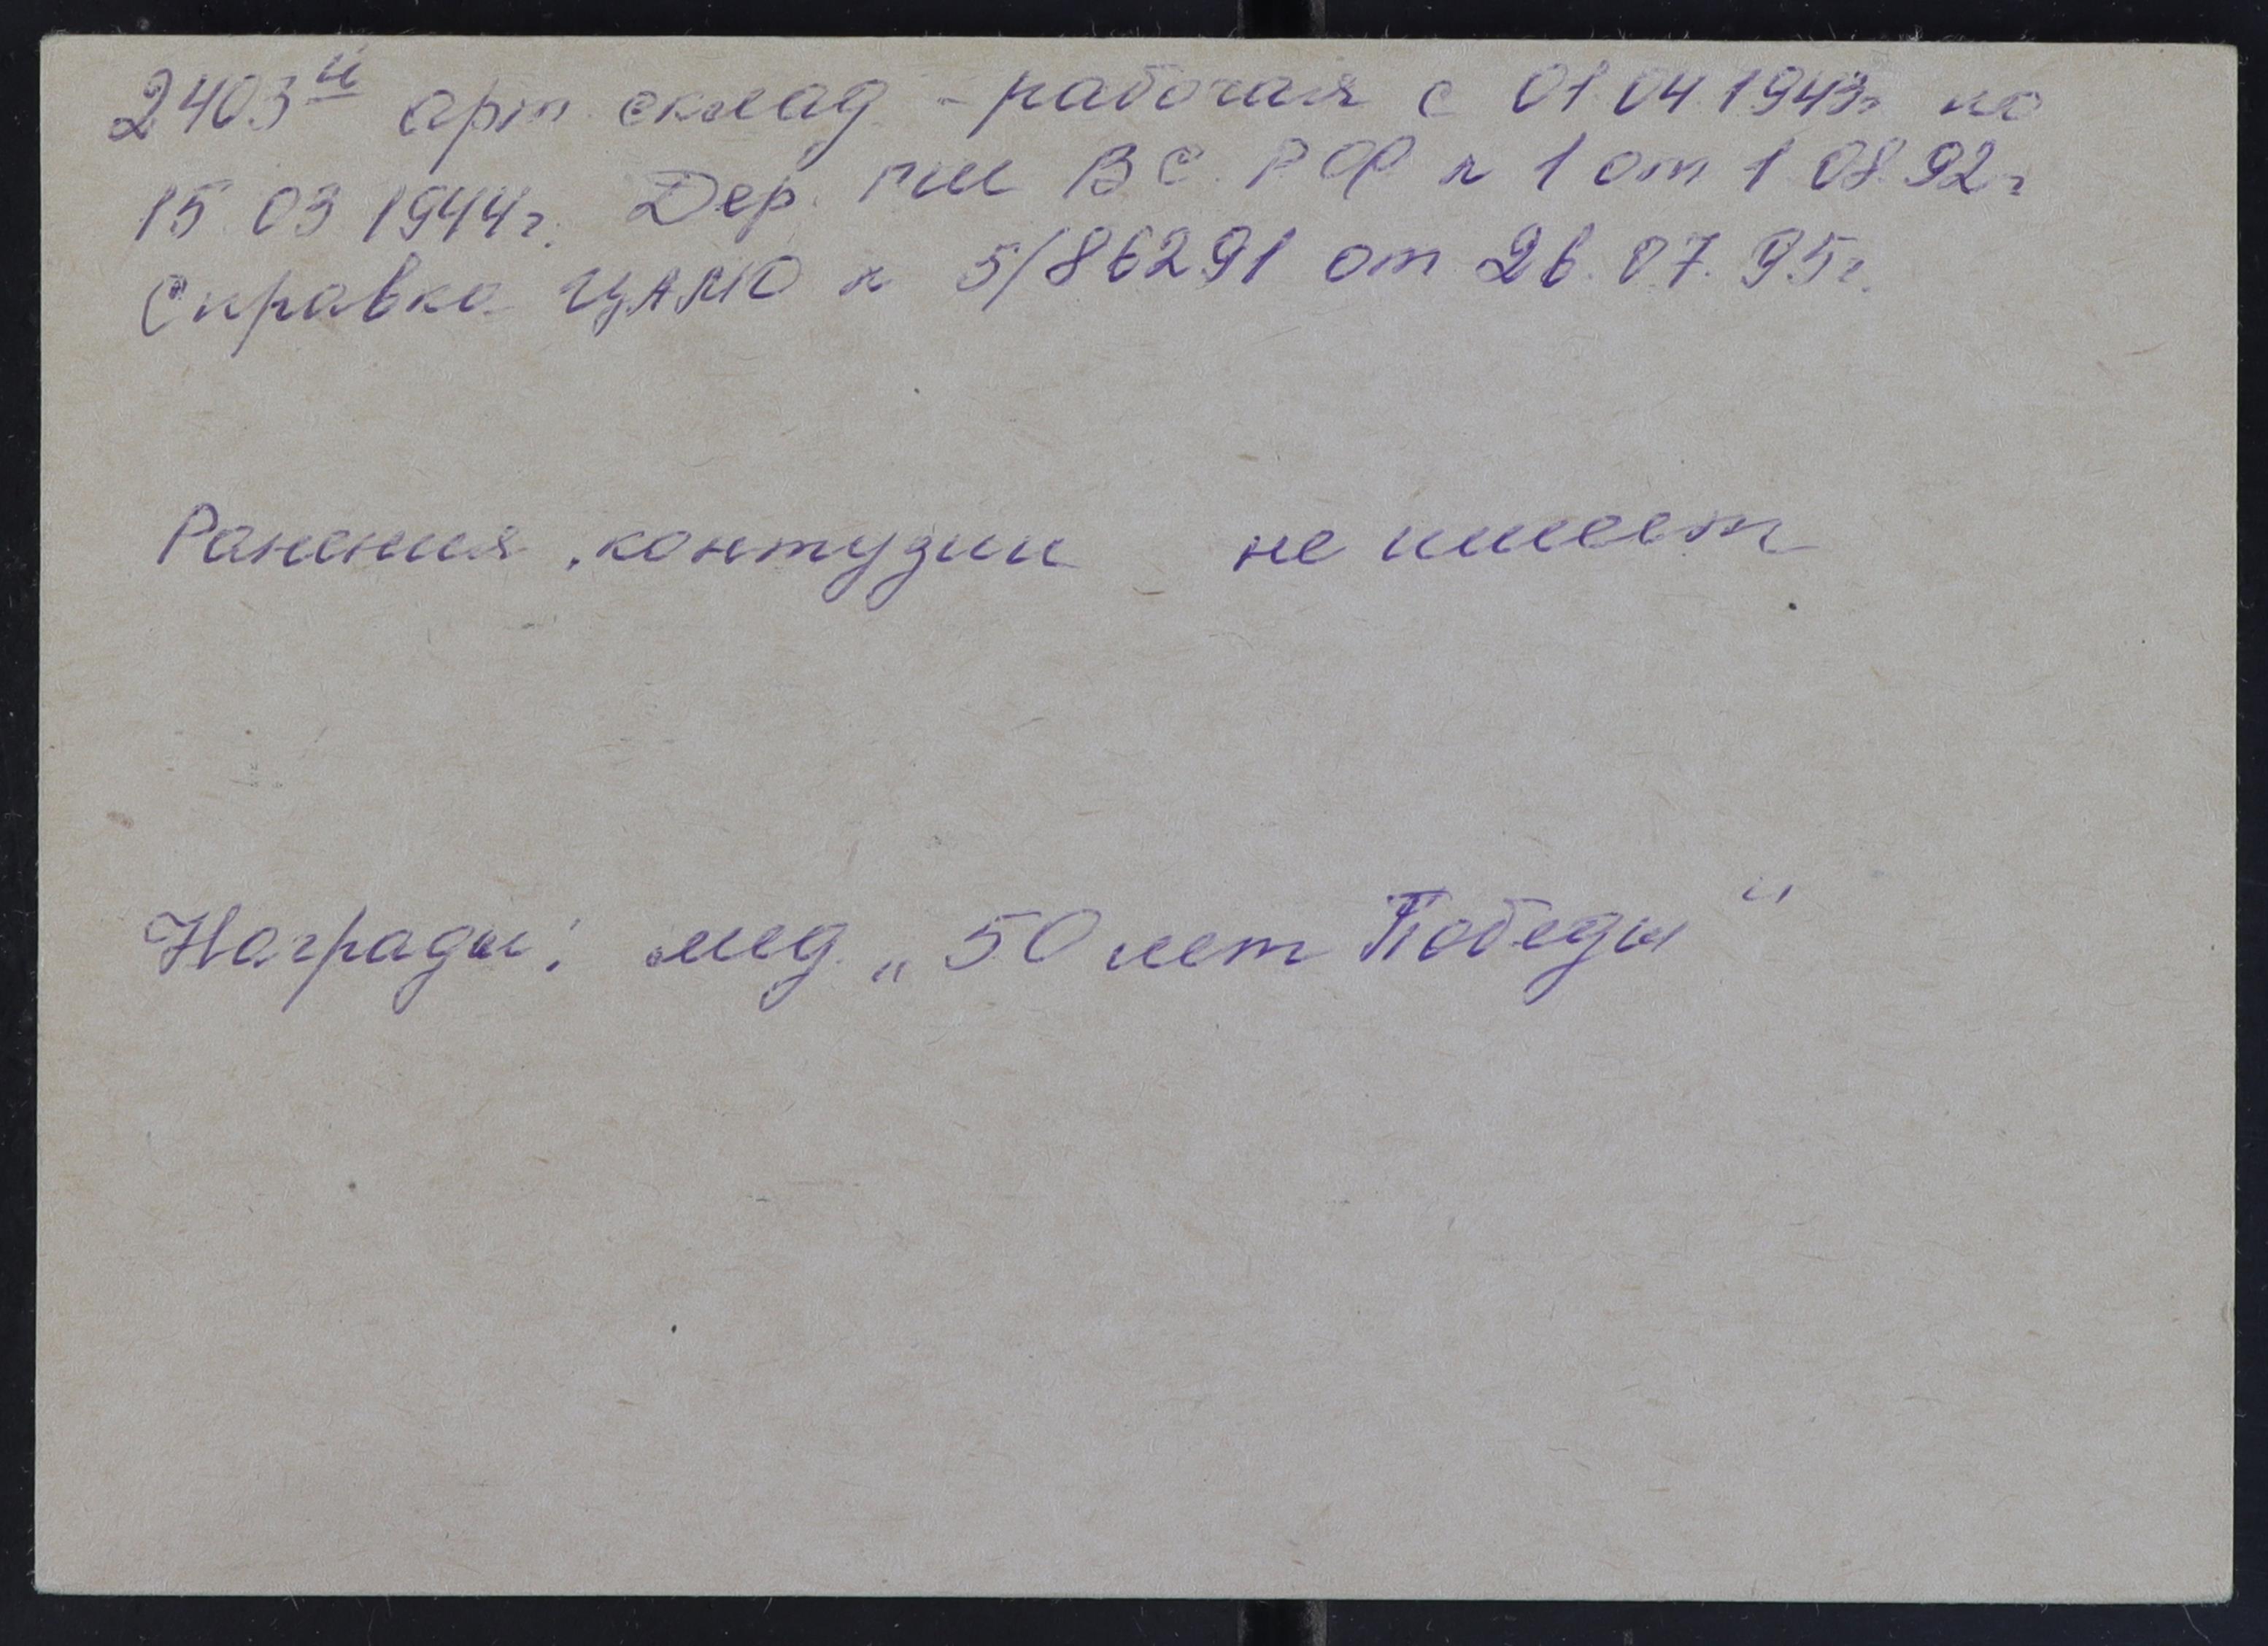 2403й арт. склад - рабочая с 01.04.1943г по
15.03.1944г. Дер. ГШ ВС РФ н 1 от 1.08.92г
Справка ЦАМО н 5/86291 от 26.07.95г.
Ранения, контузии не имеет
Награды: мед. „50 лет Победы“